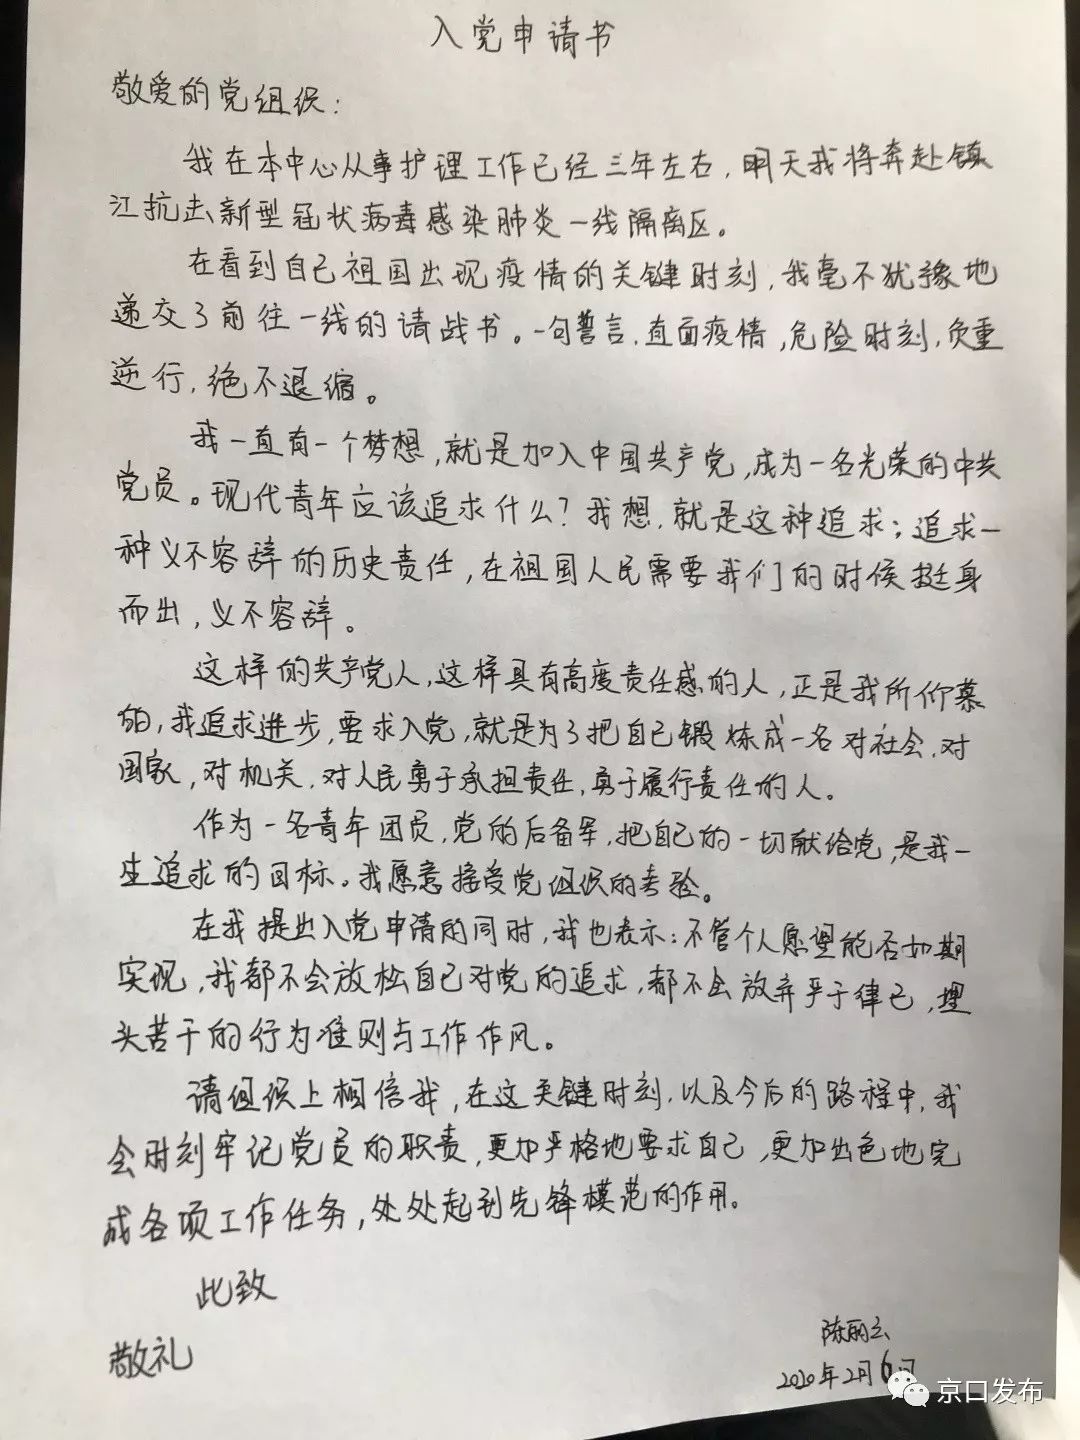 入党申请书
敬爱的党组织:
我在本中心从事护理工作已经三年左右,明天我将奔赴镇
江抗击新型冠状病毒感染肺炎一线隔离区。
在看到自己祖国出现疫情的关键时刻,我毫不犹豫地
递交了前往一线的请战书。一句誓言,直面疫情,危险时刻,负重
逆行,绝不退缩。
我一直有一个梦想,就是加入中国共产党,成为一名光荣的中共
党员。现代青年应该追求什么?我想,就是这种追求;追求一
种义不容辞的历史责任,在祖国人民需要我们的时候挺身
而出,义不容辞。
这样的共产党人,这样具有高度责任感的人,正是我所仰慕
的,我追求进步,要求入党,就是为了把自己锻炼成一名对社会,对
国家,对机关,对人民勇于承担责任,勇于履行责任的人。
作为一名青年团员,党的后备军,把自己的一切献给党,是我一
生追求的目标。我愿意接受党组织的考验。
在我提出入党申请的同时,我也表示:不管个人愿望能否如期
实现,我都不会放松自己对党的追求,都不会放弃严于律己,埋
头苦干的行为准则与工作作风。
请组织上相信我,在这关键时刻,以及今后的路程中,我
会时刻牢记党员的职责,更加严格地要求自己,更加出色地完
成各项工作任务,处处起到先锋模范的作用。
此致
敬礼
陈丽云
2020年2月6日
京口发布